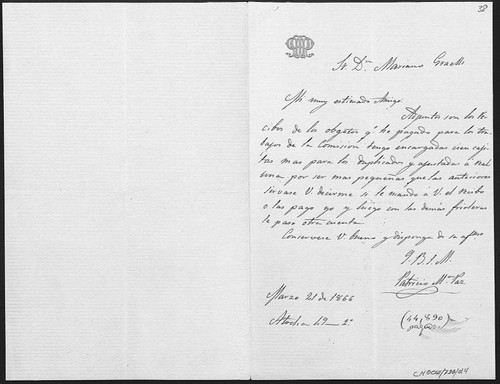 38
Sr. Dn. Mariano Graells
Mi muy estimado Amigo.
Adjuntos son los re-
cibos de los obgetos q.e he pagado para los tra-
bajos de la Comision tengo encargadas cien caji-
tas mas para los duplicados y ajustadas á real
una por ser mas pequeñas que las anteriores
sirvase V. decirme si le mando á V. el recibo
o las pago yo y luego con las demás frioleras
le paso otra cuenta.
Conservese V. bueno y disponga de su affmo
Q.B.S.M.
Patricio Ma. Paz
Marzo 21 de 1866
Atocha 49 - 2º
(44,890)
pagado
CN0042/720/014